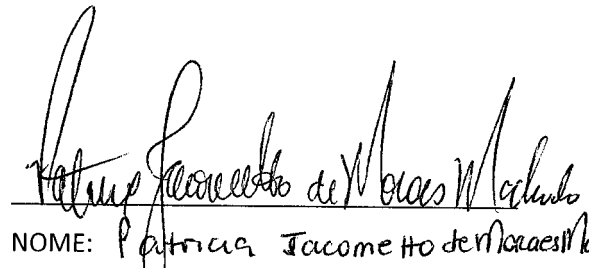 Patricia Jacometto de Moraes Machado
NOME: Patricia Jacometto de Moraes M